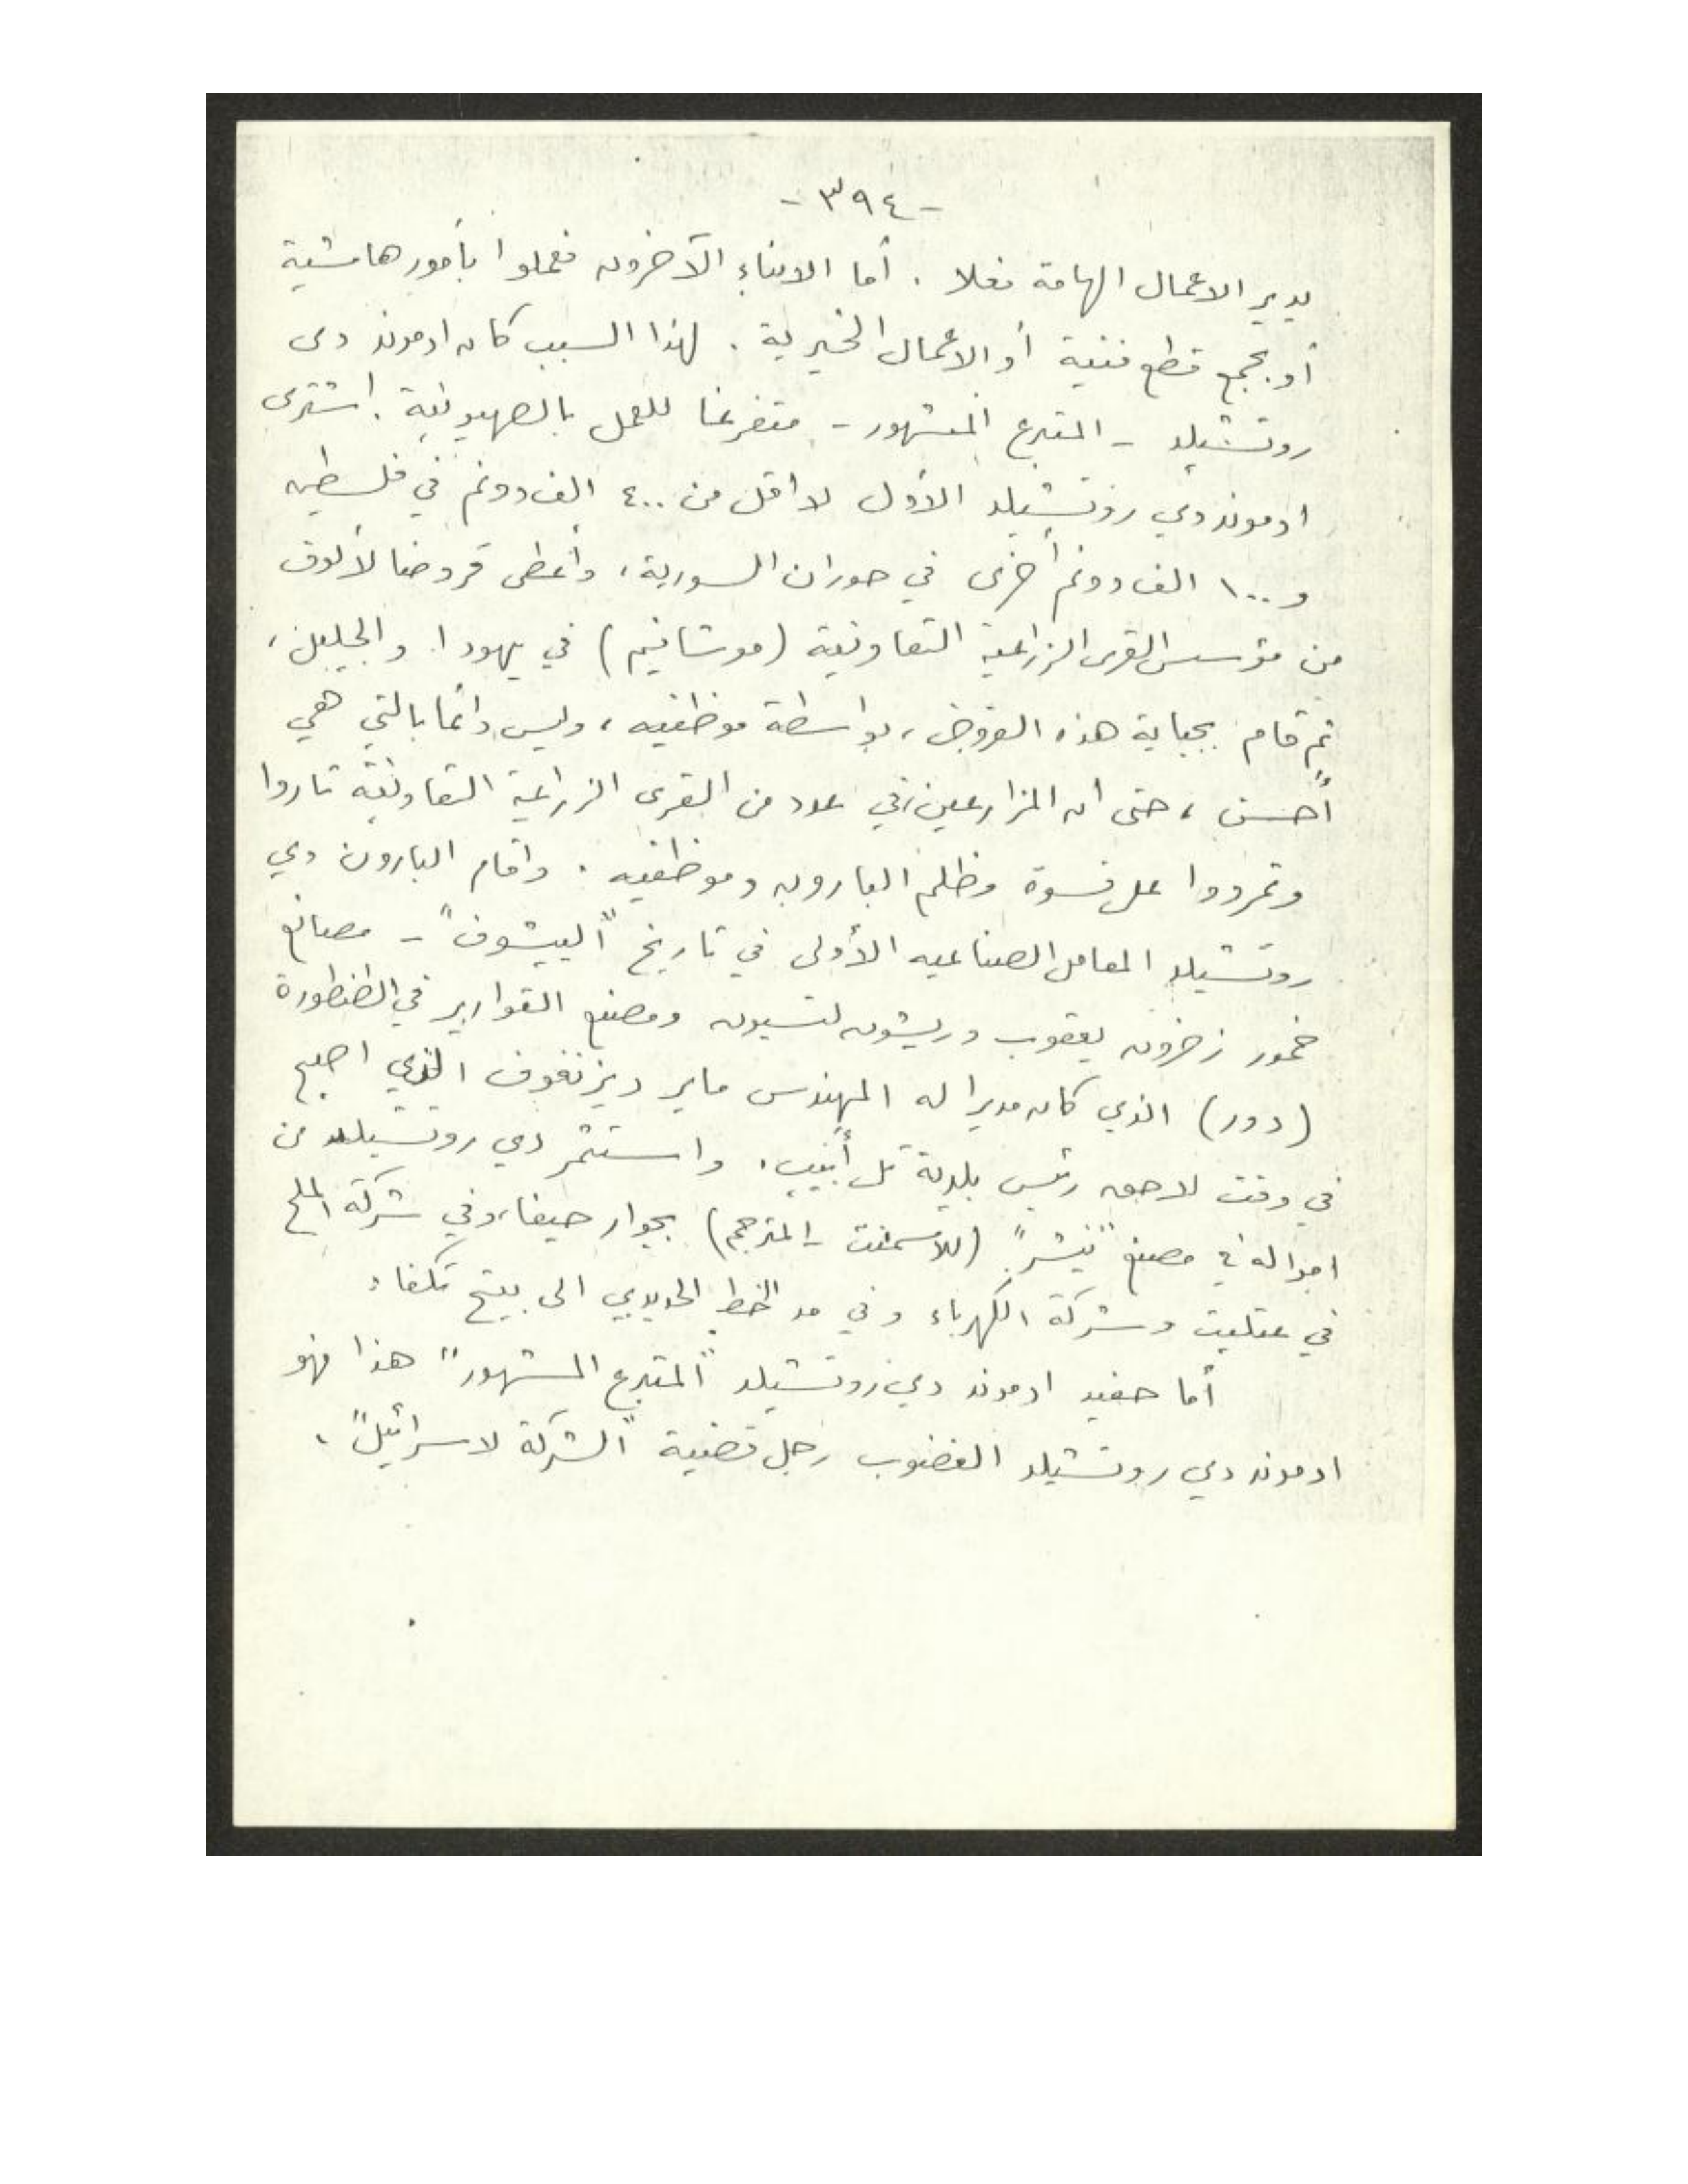 - ٣٩٤ -
يدير الاعمال الهامة فعلا . أما الابناء الآخرون فعملوا بأمور هامشية
أو بجمع قطع فنية أو الاعمال الخيرية . لهذا السبب كان ادموند دى
روتشيلد - المتبرع المشهور - متفرغا للعمل بالصهيونية . اشترى
ادموند دي روتشيلد الأول لا اقل من ٤٠٠ الف دونم في فلسطين
و ١٠٠ الف دونم أخرى في حوران السورية ، وأعطى قروضا لألوف
من مؤسس القرى الزراعية التعاونية (موشافيم) في يهودا والجليل ،
ثم قام بجباية هذه القروض ، بواسطة موظفيه ، وليس دائما بالتي هي
أحسن ، حتى ان المزارعين في عدد من القرى الزراعية التعاونية ثاروا
وتمردوا على قسوة وظلم البارون وموظفيه . واقام البارون دي
روتشيلد المعامل الصناعيه الأولى في تاريخ "الييشوف" - مصانع
خمور زخرون يعقوب وريشون لتسيون ومصنع القوارير في الطنطورة
(دور) الذي كان مديرا له المهندس ماير ديزنغوف الذي اصبح
في وقت لاحق رئيس بلدية تل أبيب . واستثمر دي روتشيلد من
امواله في مصنع "نيشر" (للاسمنت - المترجم) بجوار حيفا ، وفي شركة الملح
في عتليت وشركة الكهرباء وفي مد الخط الحديدي الى بيتح تكفا .
أما حفيد ادموند دي روتشيلد "المتبرع المشهور" هذا فهو
ادموند دي روتشيلد الغضوب رجل قضية "الشركة لاسرائيل" .